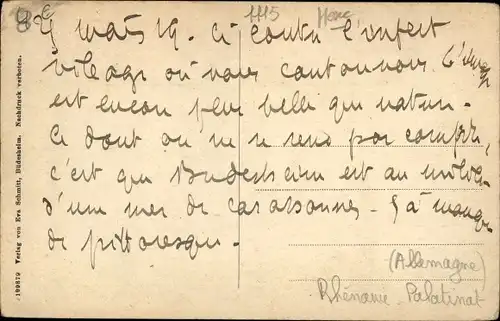 1115
24 mars 19. Ci contre l'infect
village où nous cantonnons. L'image
est encore plus belle que nature.
Ce dont on ne se rend pas compte,
c'est que Budesheim est au milieu
d'une mer de carassonnes - Ça manque
de pittoresque.
(Allemagne)
Rhénanie-Palatinat
199879 Verlag von Eva Schmitt, Büdesheim. Nachdruck verboten.